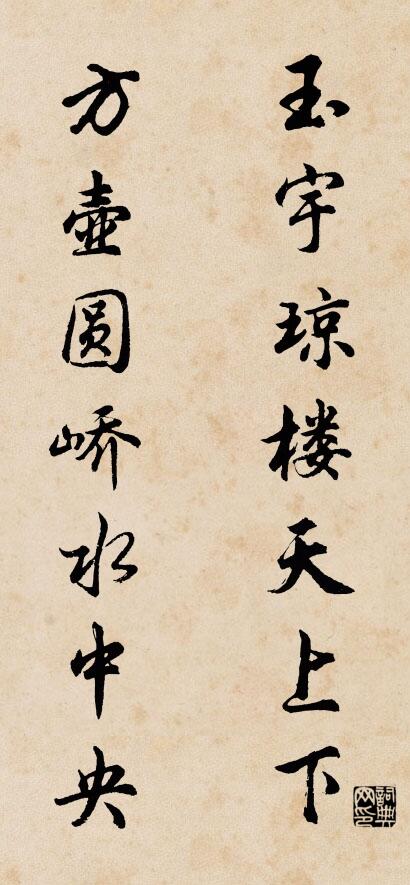 玉宇琼楼天上下
方壶圆峤水中央
詞典网印